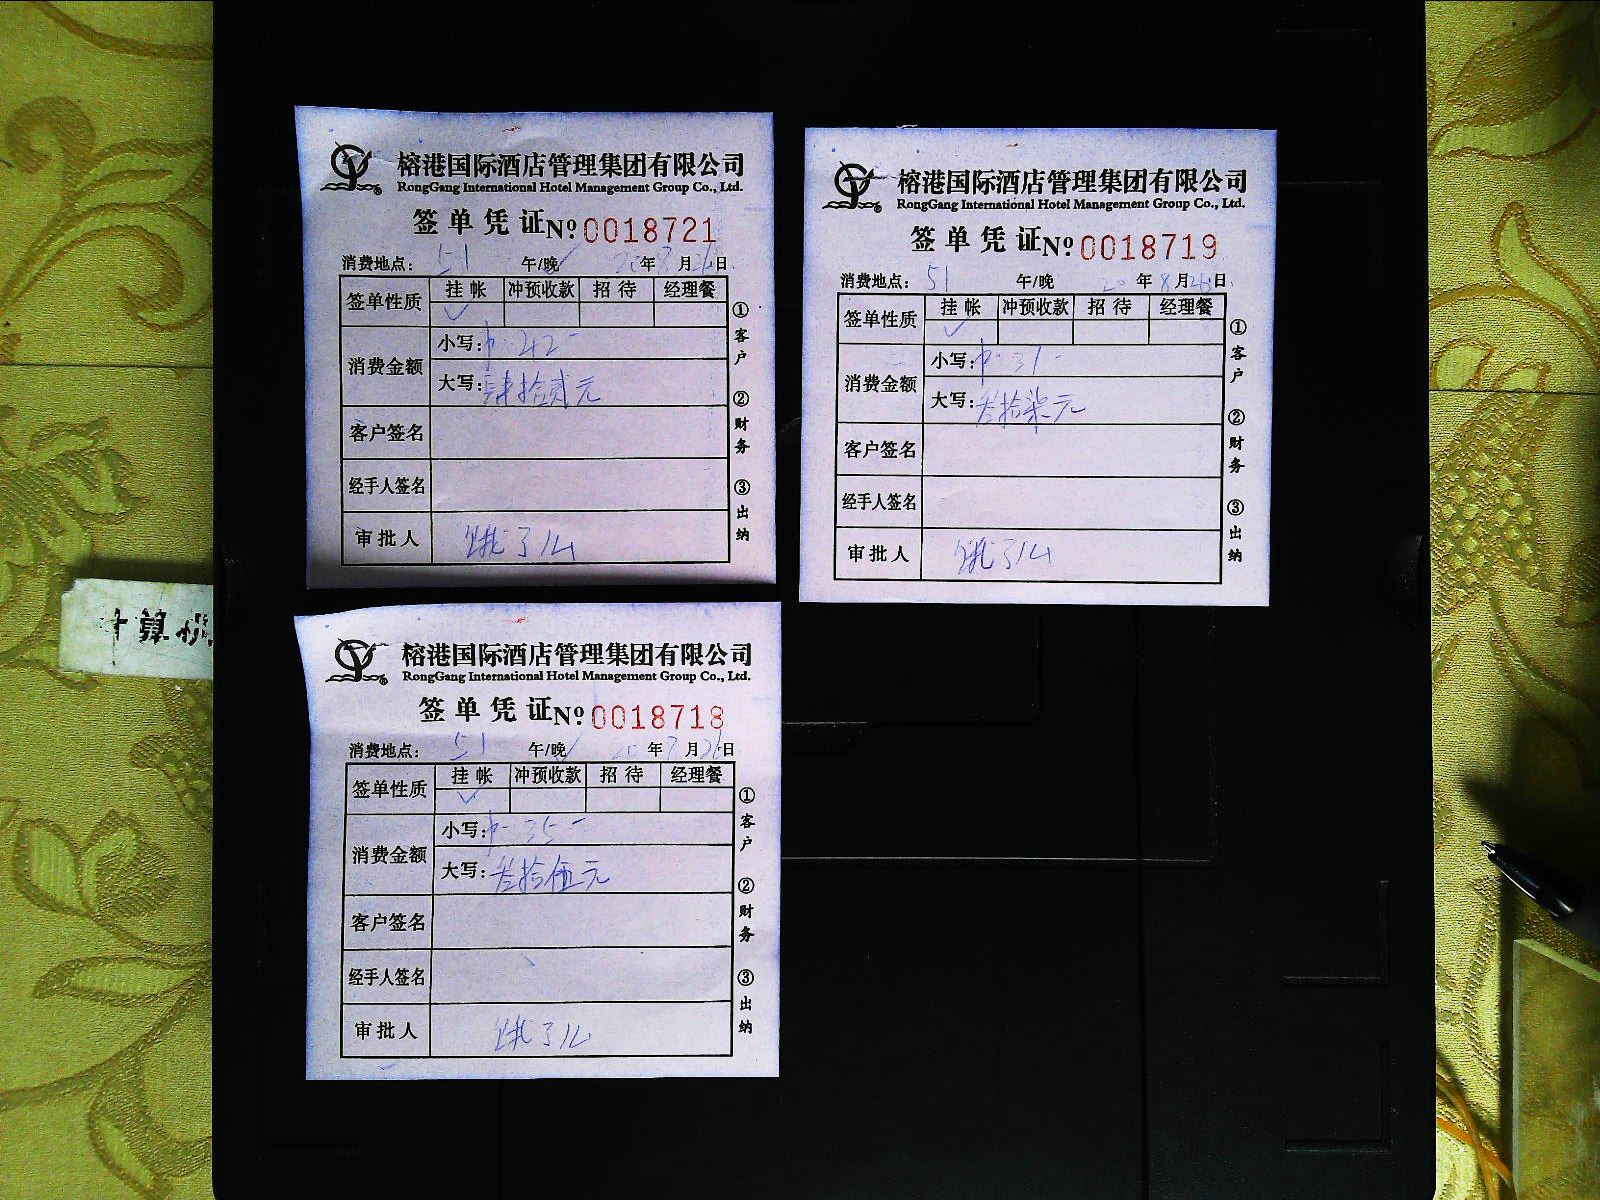 榕港国际酒店管理集团有限公司
RongGang International Hotel Management Group Co., Ltd.
签单凭证 №0018721
消费地点: 51 午/晚 20年8月26日
签单性质 挂帐 冲预收款 招待 经理餐
消费金额
小写: 42-
大写: 肆拾贰元
客户签名
经手人签名
审批人
①客户 ②财务 ③出纳
榕港国际酒店管理集团有限公司
RongGang International Hotel Management Group Co., Ltd.
签单凭证 №0018719
消费地点: 51 午/晚 20年8月26日
签单性质 挂帐 冲预收款 招待 经理餐
消费金额
小写:
大写: 叁拾柒元
客户签名
经手人签名
审批人
①客户 ②财务 ③出纳
榕港国际酒店管理集团有限公司
RongGang International Hotel Management Group Co., Ltd.
签单凭证 №0018718
消费地点: 51 午/晚 20年 月26日
签单性质 挂帐 冲预收款 招待 经理餐
消费金额
小写: 35-
大写: 叁拾伍元
客户签名
经手人签名
审批人
①客户 ②财务 ③出纳
计算机